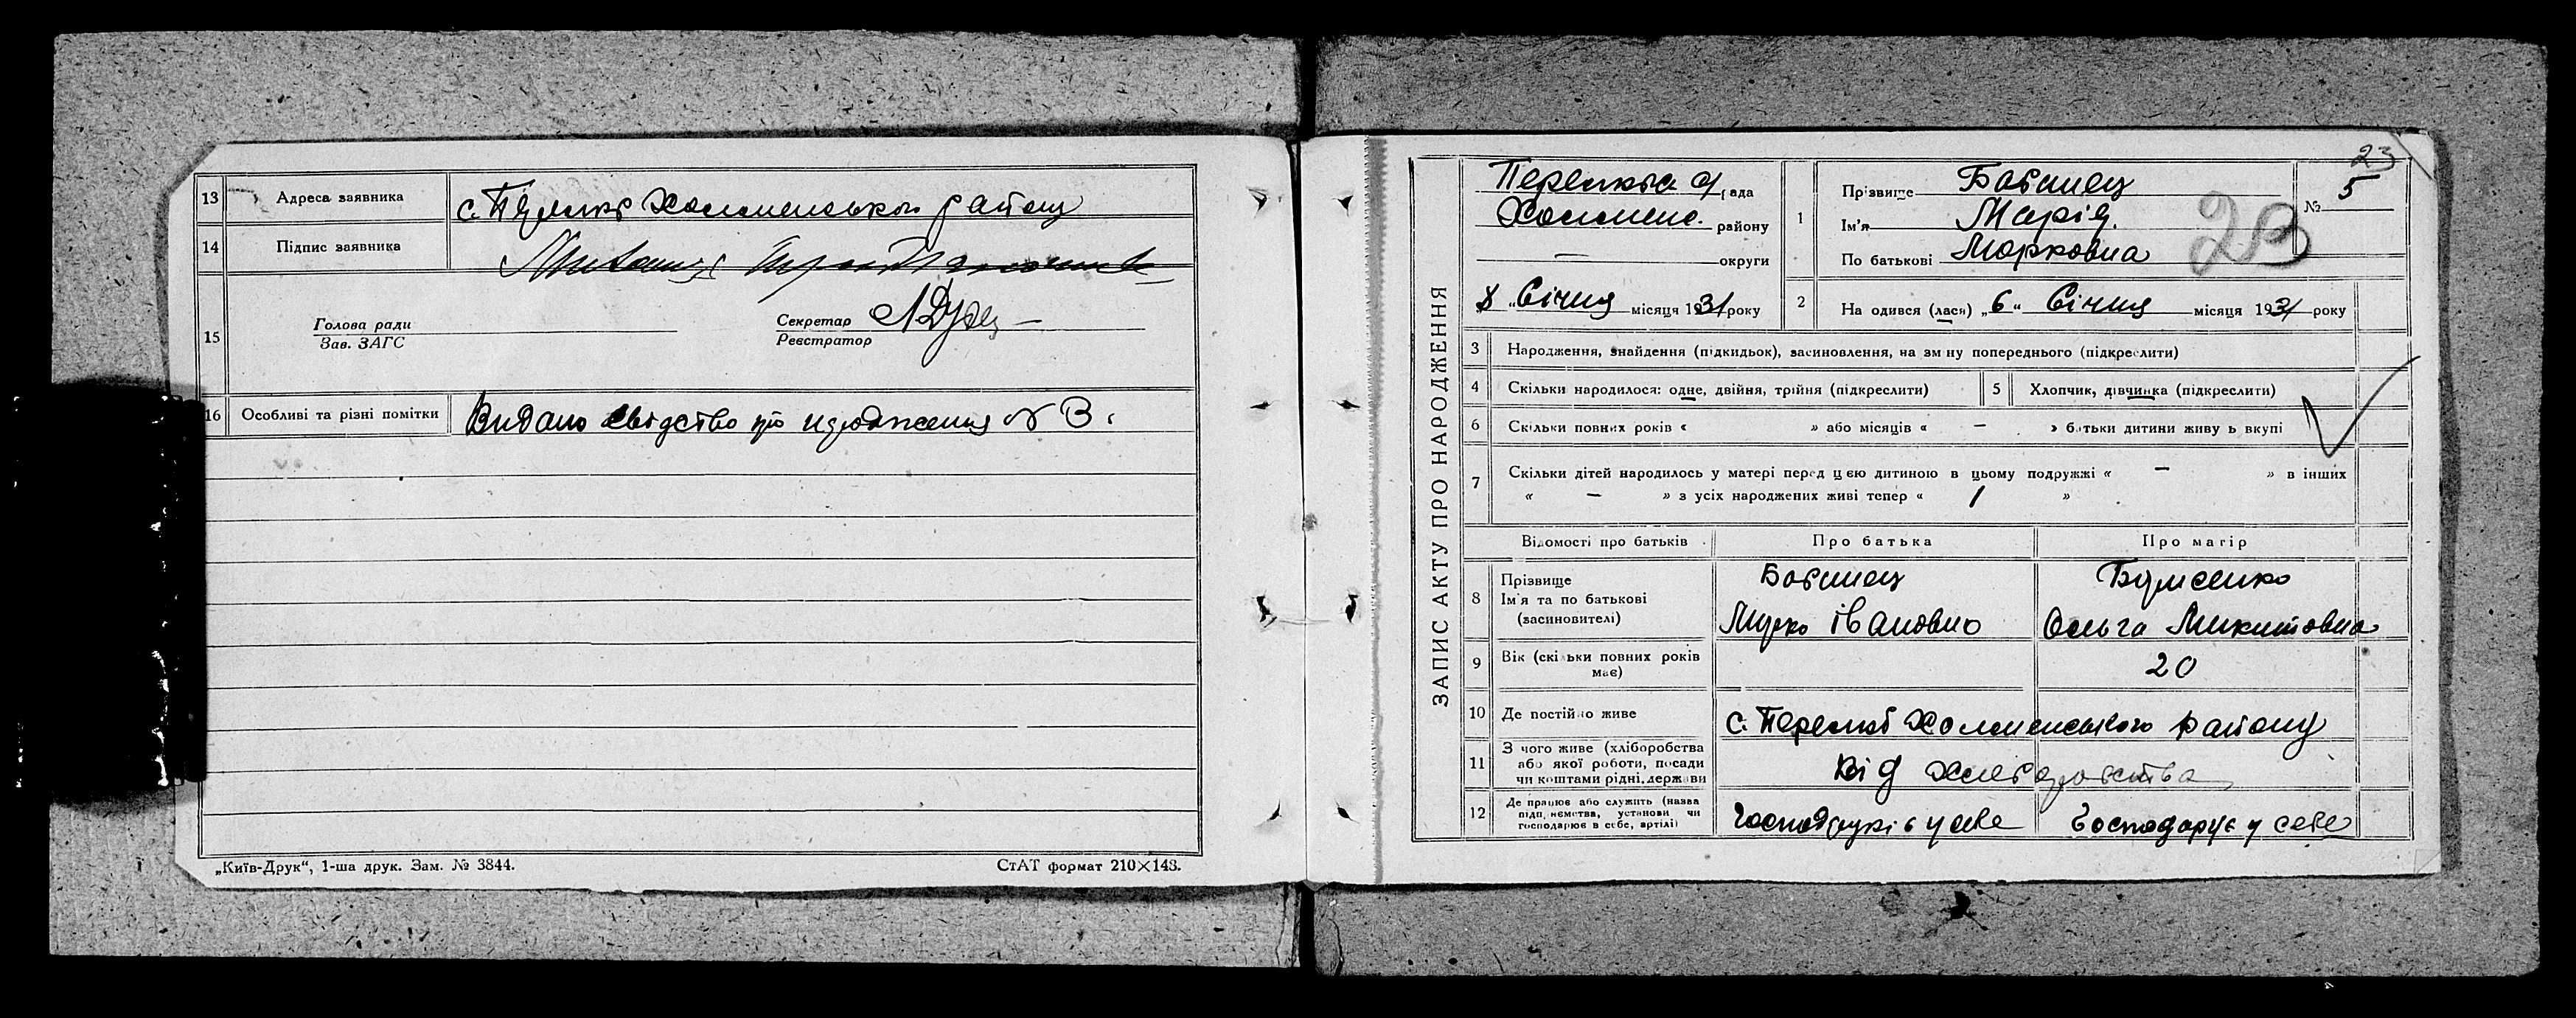 13 Адреса заявника с. Перелюб Холменського району
14 Підпис заявника
15 Голова ради
Зав. ЗАГС
Секретар
Реєстратор
16 Особливі та різні помітки Видано свідоцтво про народження № 3.
„Київ-Друк“, 1-ша друк. Зам. № 3844.
СтАТ формат 210×143.
ЗАПИС АКТУ ПРО НАРОДЖЕННЯ
23
рада
Холменс. району
— округи
8 „Січня місяця 1931 року
1 Прізвище
Ім'я Марія
По батькові Марковна
№ 5
23
2 На одився (лася) „6“ Січня місяця 1931 року
3 Народження, знайдення (підкидьок), засиновлення, на зміну попереднього (підкреслити)
4 Скільки народилося: одне, двійня, трійня (підкреслити)
5 Хлопчик, дівчинка (підкреслити)
6 Скільки повних років « » або місяців « — » батьки дитини живуть вкупі
7 Скільки дітей народилось у матері перед цією дитиною в цьому подружжі « — » в інших
« — » з усіх народжених живі тепер « 1 »
Відомості про батьків Про батька Про матір
8 Прізвище
Ім'я та по батькові
(засиновителі)
Марко Івановіч
Ольга Микитовна
9 Вік (скільки повних років має) 20
10 Де постійно живе с. Перелюб Холменського району
11 З чого живе (хліборобства
або якої роботи, посади
чи коштами рідні, держави
Від хліборобства
12 Де працює або служить (назва
підприємства, установи чи
господарює в себе, артілі)
у себе Господарує у себе